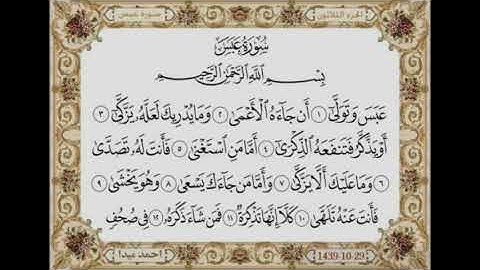 الجزء الثلاثون
سورة عبس
سُورَةُ عَبَسَ
بِسْمِ اللَّهِ الرَّحْمَٰنِ الرَّحِيمِ
عَبَسَ وَتَوَلَّىٰ ١ أَن جَاءَهُ الْأَعْمَىٰ ٢ وَمَا يُدْرِيكَ لَعَلَّهُ يَزَّكَّىٰ ٣
أَوْ يَذَّكَّرُ فَتَنفَعَهُ الذِّكْرَىٰ ٤ أَمَّا مَنِ اسْتَغْنَىٰ ٥ فَأَنتَ لَهُ تَصَدَّىٰ
٦ وَمَا عَلَيْكَ أَلَّا يَزَّكَّىٰ ٧ وَأَمَّا مَن جَاءَكَ يَسْعَىٰ ٨ وَهُوَ يَخْشَىٰ ٩
فَأَنتَ عَنْهُ تَلَهَّىٰ ١٠ كَلَّا إِنَّهَا تَذْكِرَةٌ ١١ فَمَن شَاءَ ذَكَرَهُ ١٢ فِي صُحُفٍ
1439-10-29
احمدي عبدا